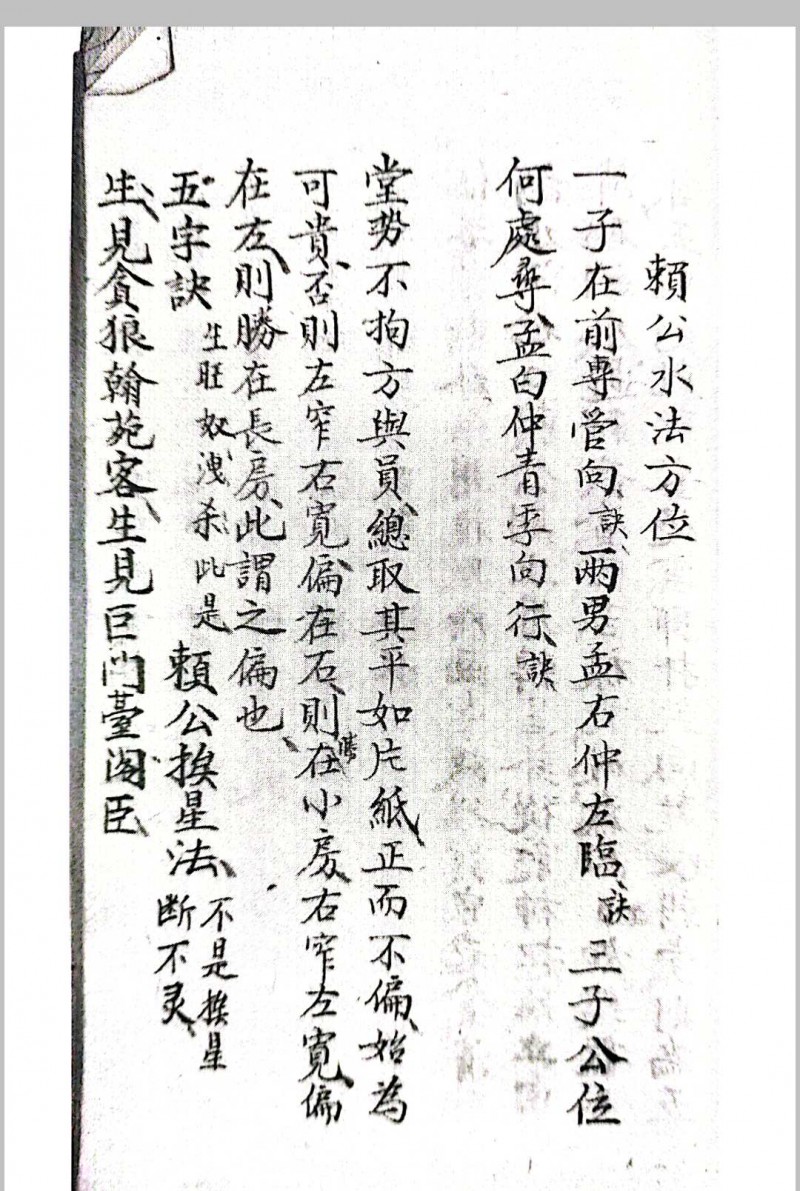 賴公水法方位
一子在前專管向、訣、兩男孟右仲左臨、訣 三子公位
何處尋、孟白仲青季向行、訣
堂势不拘方與員、總取其平如片紙、正而不偏、始為
可貴、否則左窄右寬、偏在右、則勝在小房、右窄左寬、偏
在左、則勝在長房、此謂之偏也、
五字訣 生旺奴洩杀此是 賴公挨星法、不是挨星断不灵、
生、見貪狼翰苑客、生見巨门臺阁臣、